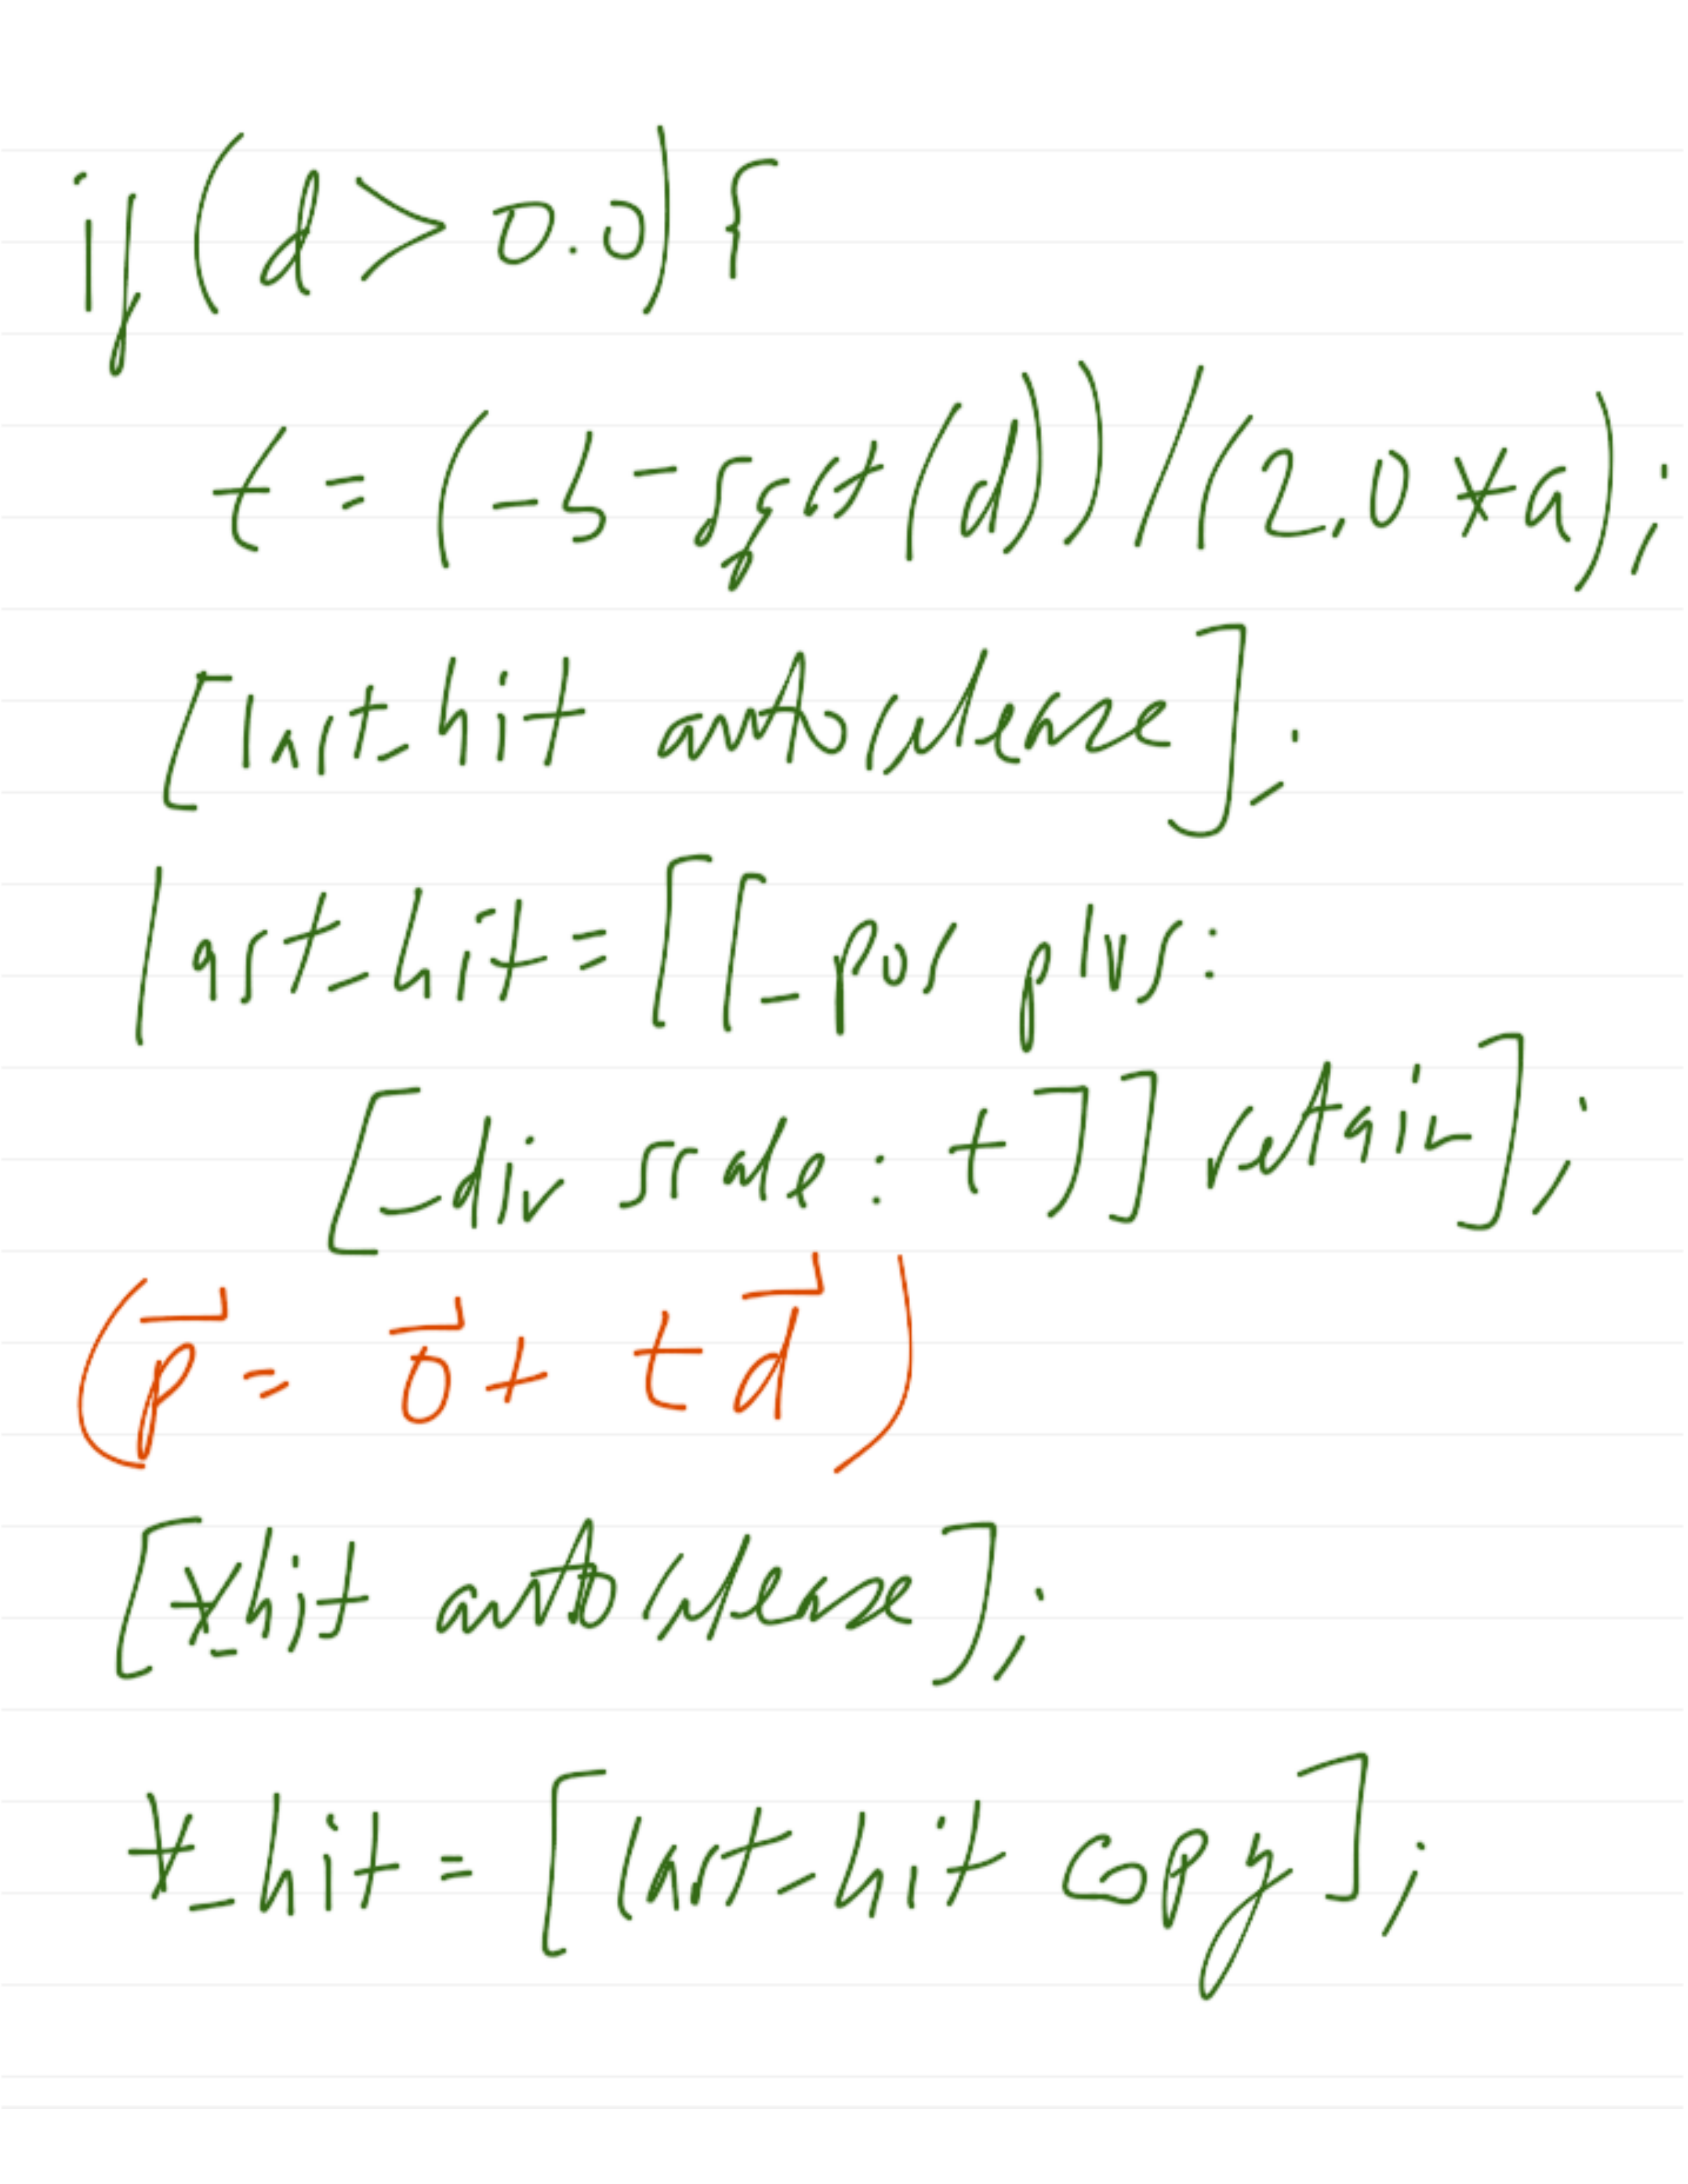 if (d > 0.0) {
t = (-b - sqrt(d)) / (2.0 * a);
[last_hit autorelease];
last_hit = [[_pos plus:
[_dir scale: t]] retain];
(p⃗ = o⃗ + t d⃗)
[*_hit autorelease];
*_hit = [last_hit copy];